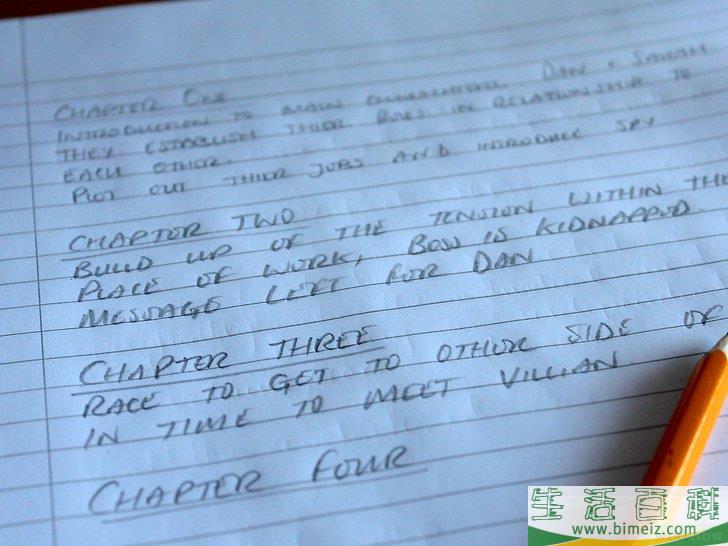 CHAPTER ONE
INTRODUCTION TO MAIN CHARACTERS DAN + SARAH
THEY ESTABLISH THIER ROLES IN RELATIONSHIP TO
EACH OTHER.
PLOT OUT THIER JOBS AND INTRODUCE SPY
CHAPTER TWO
BUILD UP OF THE TENSION WITHIN THE
PLACE OF WORK, BOSS IS KIDNAPPED
MESSAGE LEFT FOR DAN
CHAPTER THREE
RACE TO GET TO OTHER SIDE OF
IN TIME TO MEET VILLIAN
CHAPTER FOUR
生活百科
www.bimeiz.com